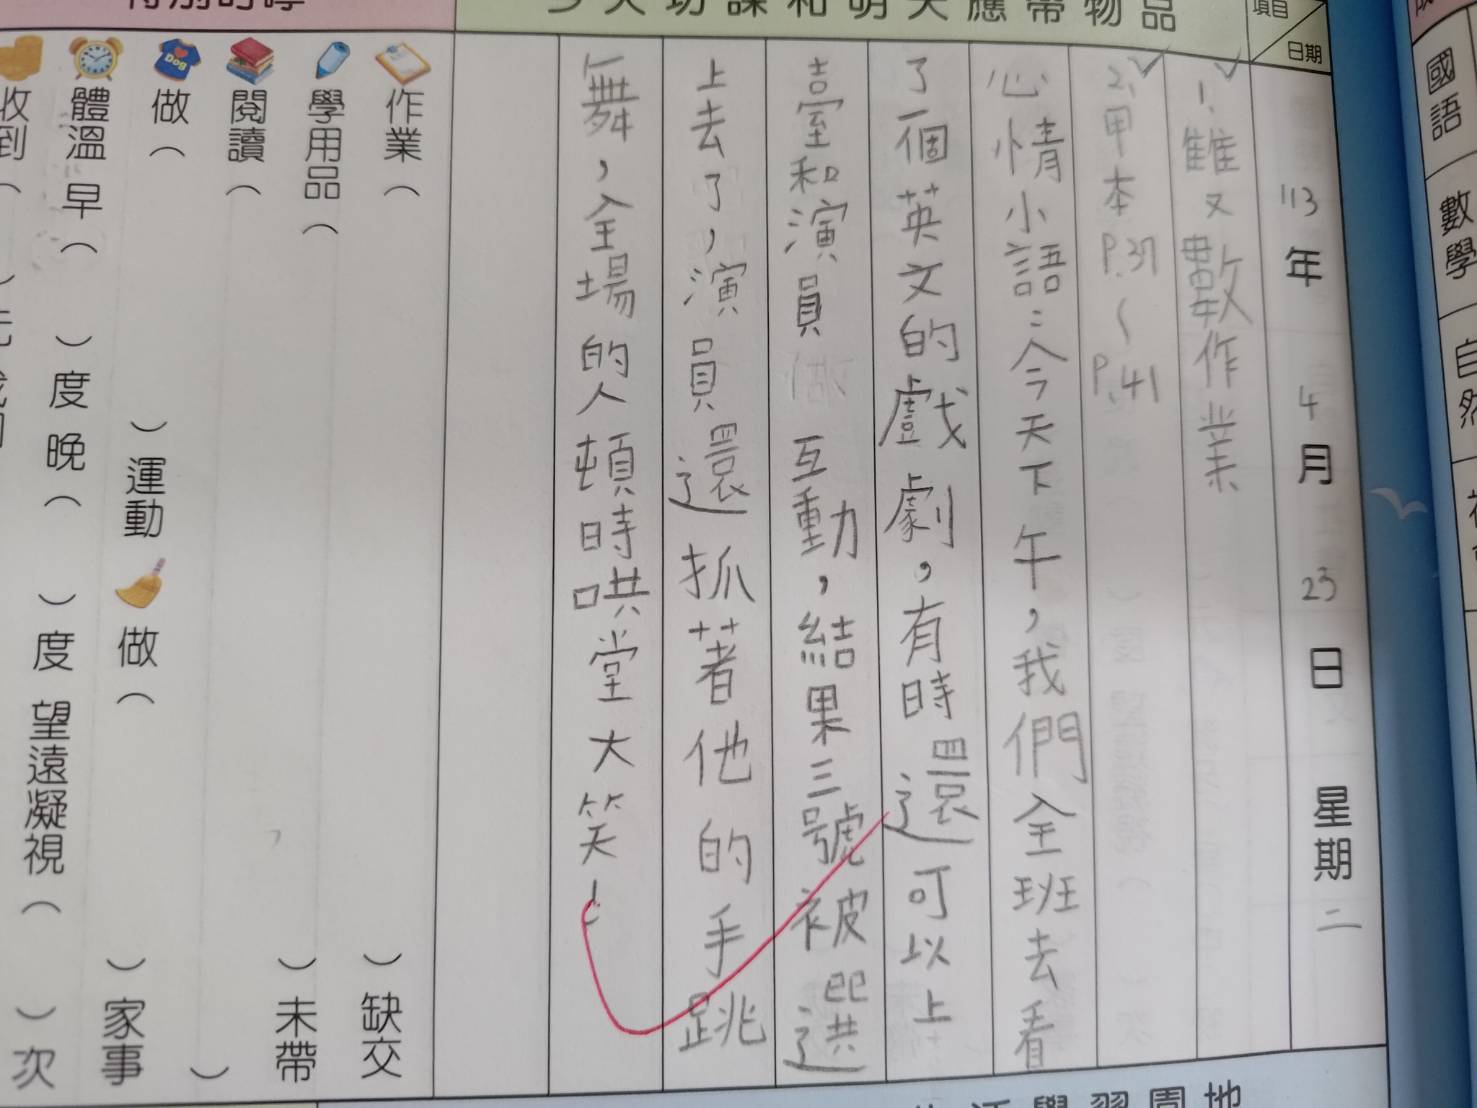 今天功課和明天應帶物品
項目
日期
113年4月23日星期二
1.雖又數作業
2.甲本P.37~P.41
心情小語:今天下午,我們全班去看
了個英文的戲劇,有時還可以上
臺和演員互動,結果三號被選
上去了,演員還抓著他的手跳
舞,全場的人頓時哄堂大笑!
特別叮嚀
作業( )缺交
學用品( )未帶
閱讀( )
做( )運動 做( )家事
體溫 早( )度 晚( )度 望遠凝視( )次
收到(
國語
數學
自然